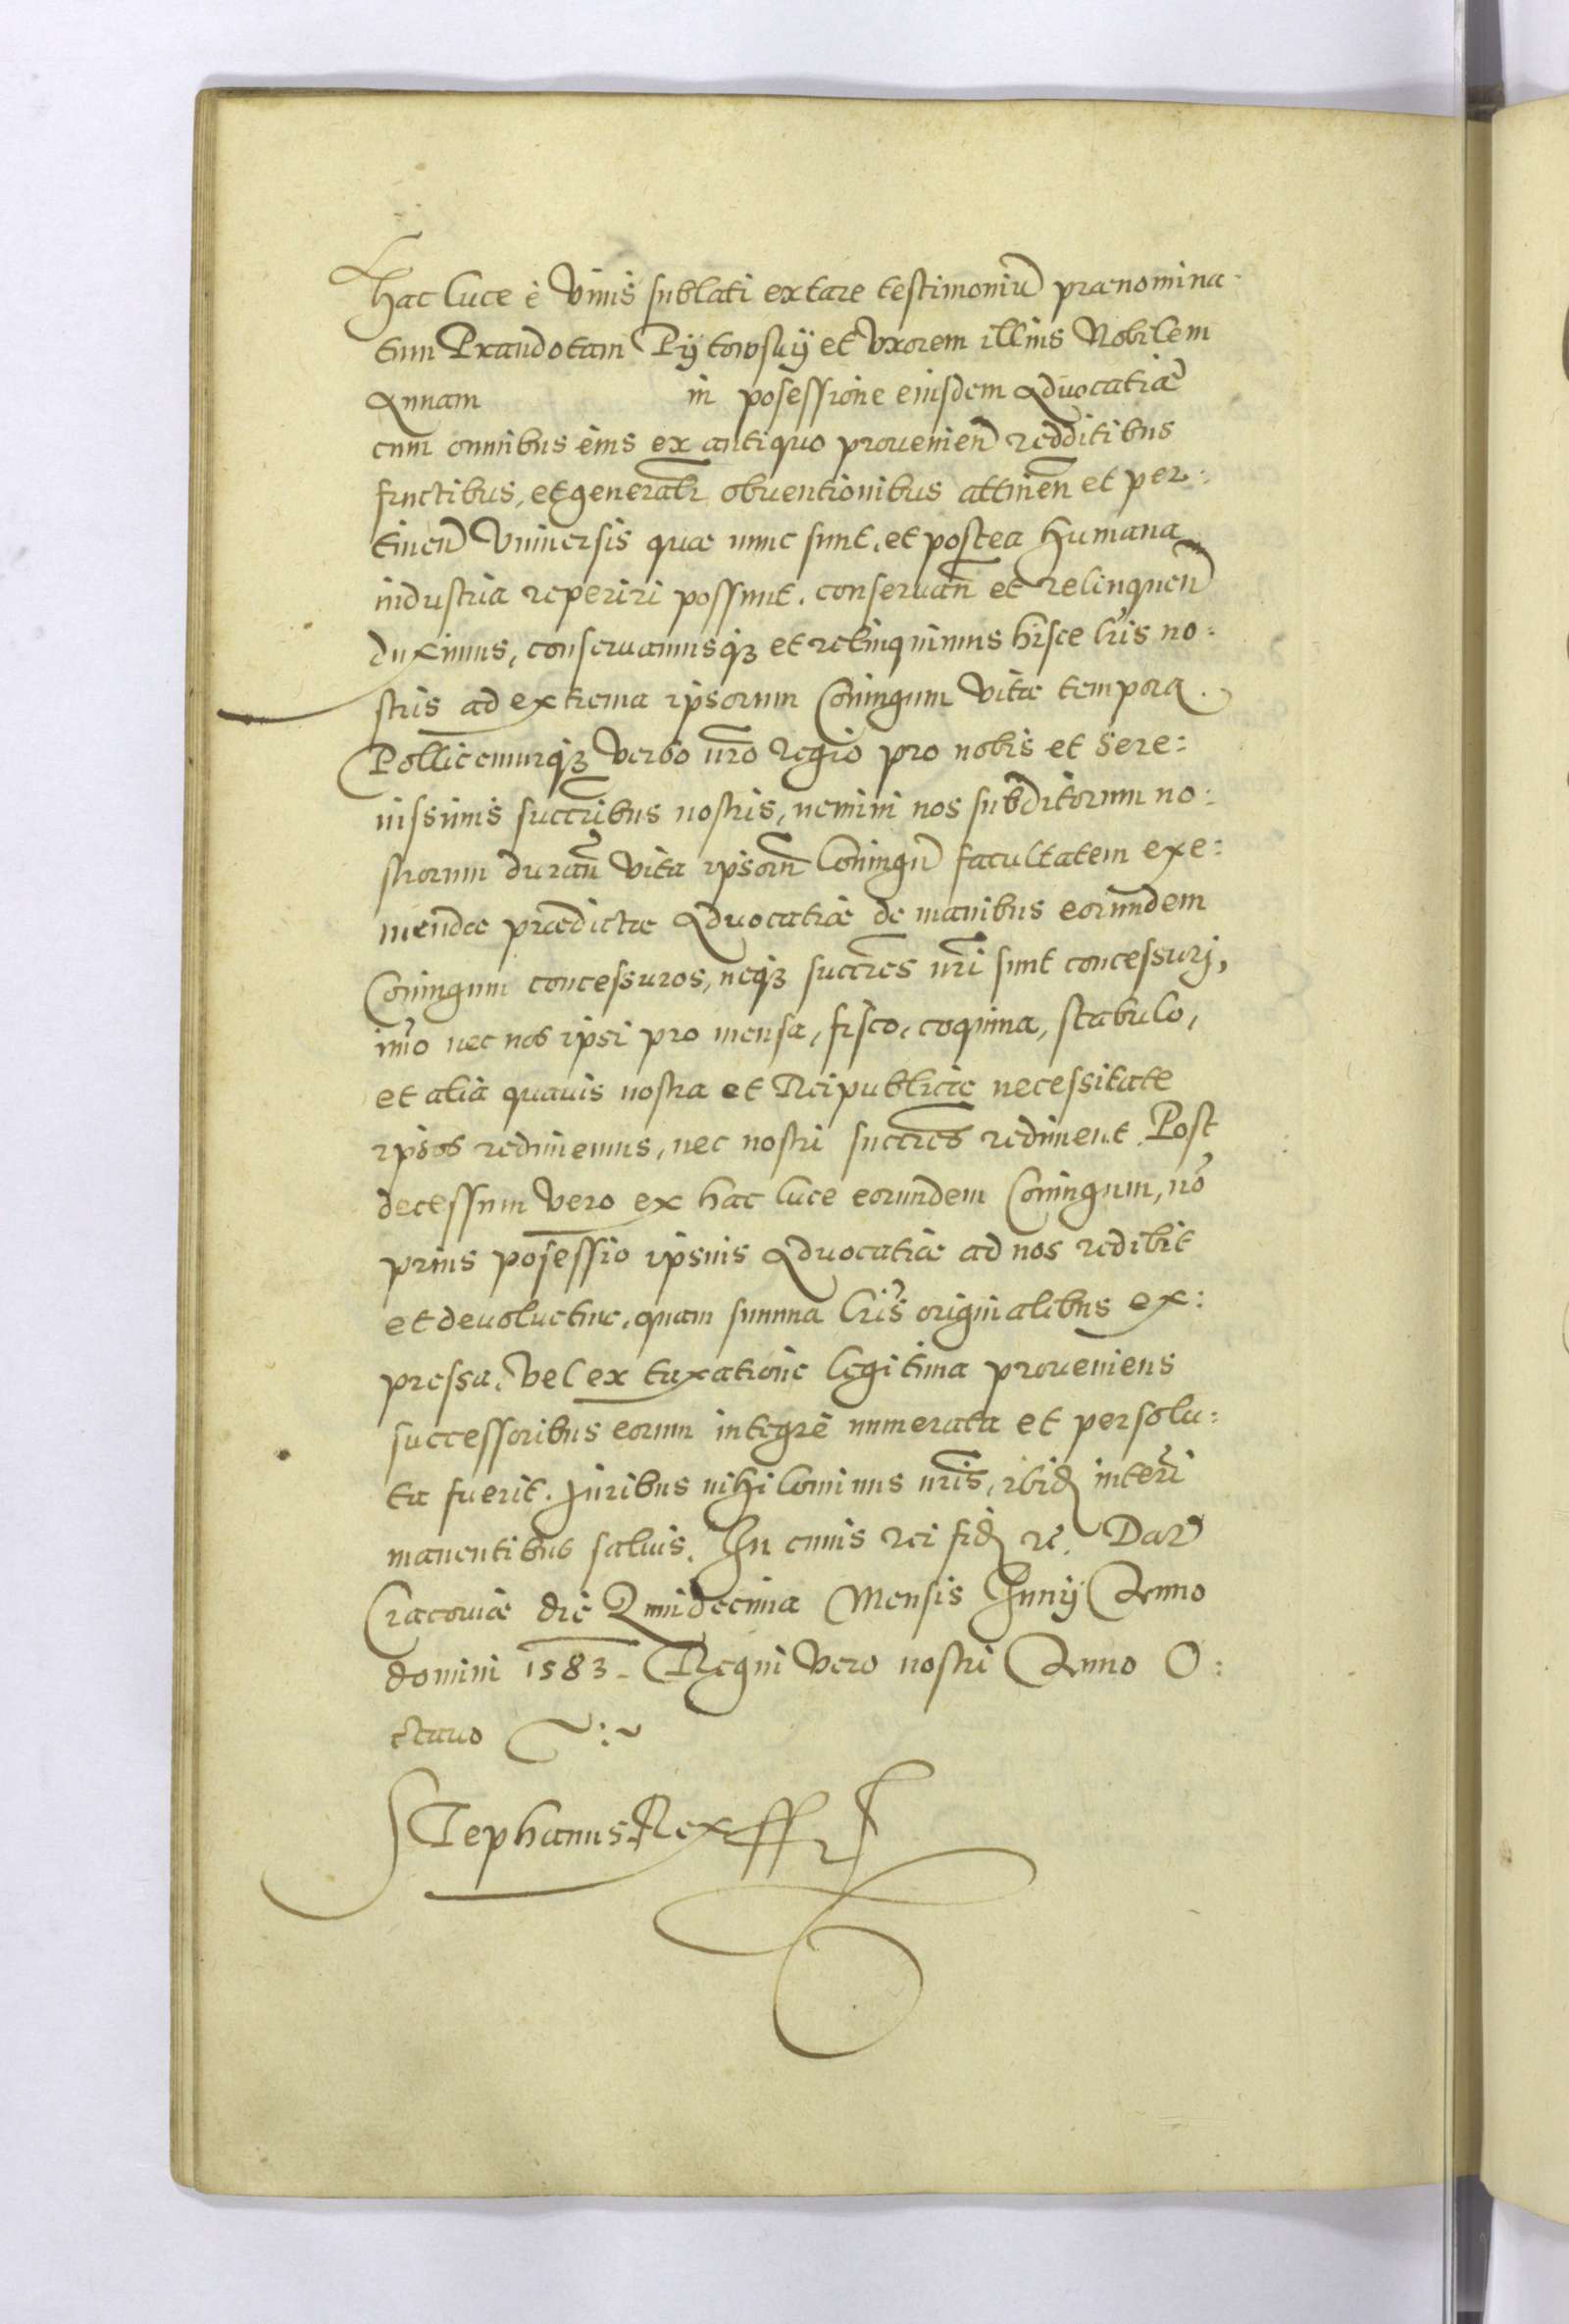 hac luce è viuis sublati extare testimoniũ prænomina-
tum Prandotam Pijtowskij et vxorem illius Nobilem
Annam in posessione eiusdem Aduocatiæ
cum omnibus eius ex antiquo prouenieñ redditibus
fructibus, et generalr̃ obuentionibus attineñ et per:
tineñ vniuersis quæ nunc sunt, et postea humana
industria reperiri possunt. conseruañ et relinqueñ
duximus, conseruamusq3 et relinquimus hisce lr̃is no:
stris ad extrema ipsorum Coniugum vitæ tempora.
Pollicemurq3 verbo nr̃o regio pro nobis et Sere:
nissimis succr̃ibus nostris, nemini nos subditorum no:
strorum durañ vita ipsorũ Coniugũ facultatem exe:
mendæ prædictæ Aduocatiæ de manibus eorundem
Coniugum concessuros, neq3 succr̃es nr̃i sunt concessurj,
im̃o nec nos ipsi pro mensa, fisco, coquina, stabulo,
et alia quauis nostra et Reipublicæ necessitate
ipsos redimemus, nec nostri succr̃es rediment. Post
decessum vero ex hac luce eorundem Coniugum, nõ
prius posessio ipsius Aduocatiæ ad nos redibit
et deuoluetur, quam summa lr̃is originalibus ex:
pressa, vel ex taxatione legitima proueniens
successoribus eorum integrè numerata et persolu:
ta fuerit. Juribus nihilominus nr̃is, ibid interĩ
manentibus saluis. In cuius rei fid rc. Dat
Cracouiæ die Quindecima Mensis Junij Anno
domini 1583. Regni vero nostri Anno O:
ctauo
Stephanus Rex ffr